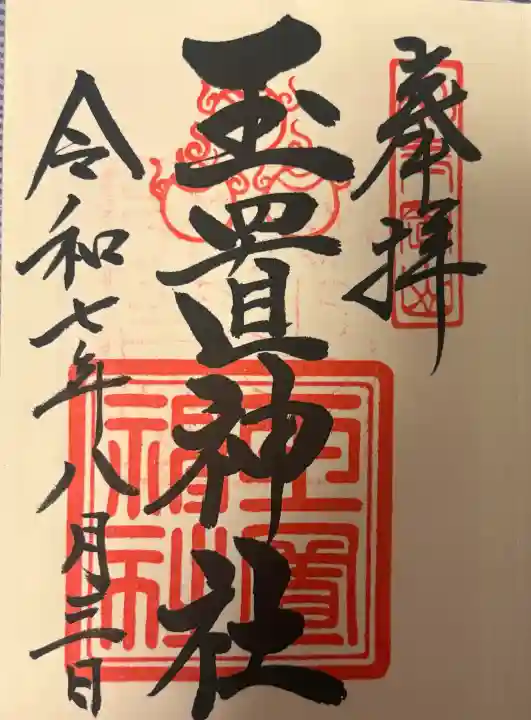 奉拝
玉置神社
令和七年八月三日
玉置
神社